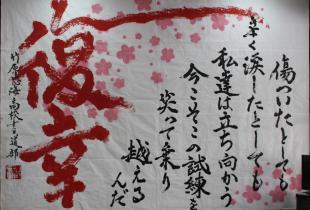 傷ついたとしても
多く涙したとしても
私達は立ち向かう
今こそこの試練を
笑って乗り
越える
んだ
復幸
高校書道部